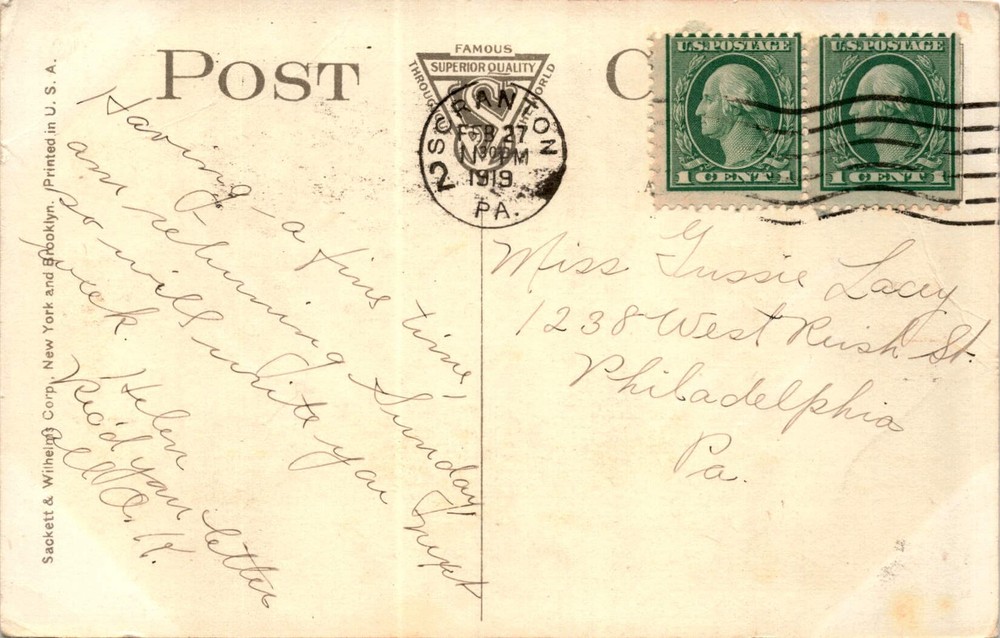 POST C
FAMOUS
SUPERIOR QUALITY
THROUGHOUT THE WORLD
SCRANTON
2
FEB 27
PM
1919
PA.
U.S. POSTAGE
1 CENT 1
U.S. POSTAGE
1 CENT 1
Sackett & Wilhelms Corp., New York and Brooklyn. Printed in U. S. A.
Having a fine time,
am returning Sunday
so will write you next
week. Helen
Rec'd your letter
all O.K.
Miss Gussie Lacey
1238 West Rush St.
Philadelphia
Pa.